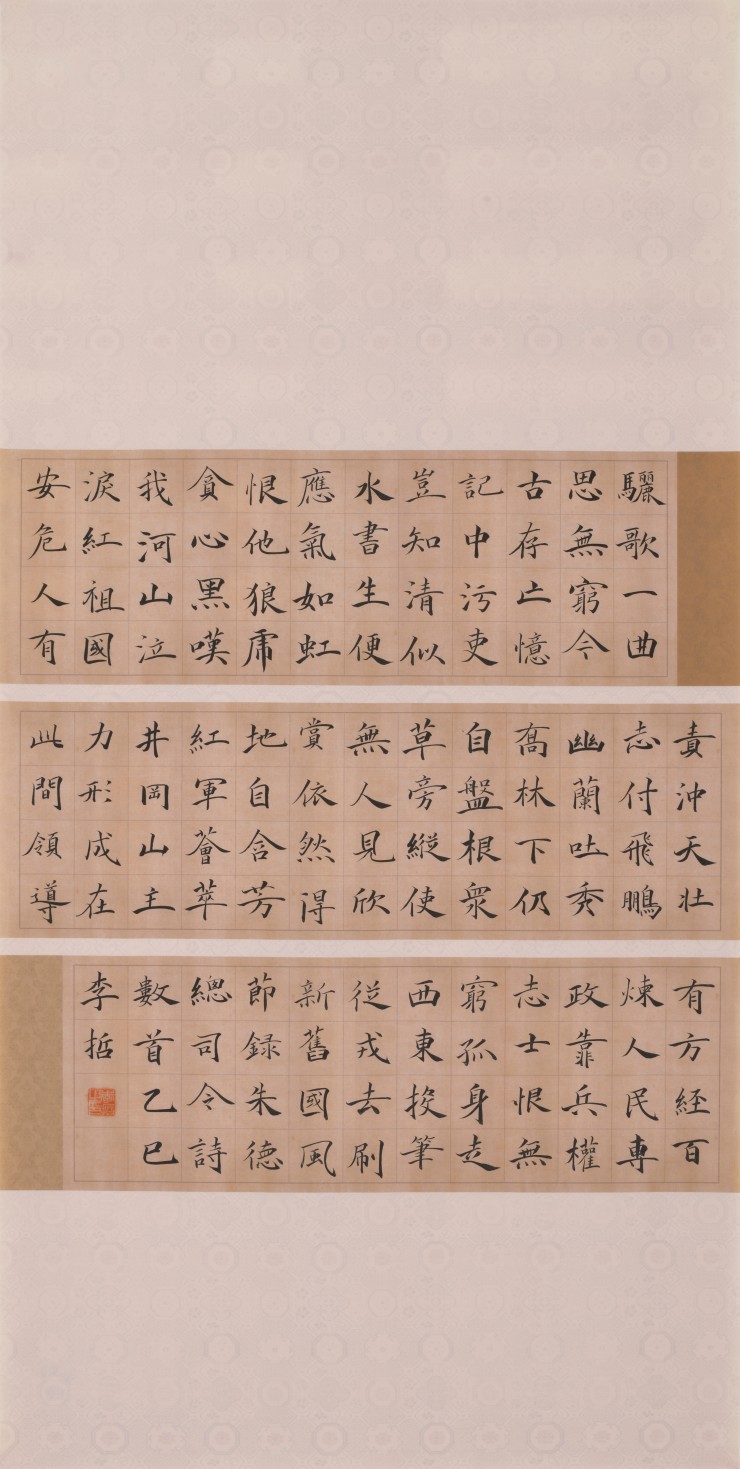 驪歌一曲
思無窮今
古存亡憶
記中污吏
豈知清似
水書生便
應氣如虹
恨他狼虎
貪心黑嘆
我河山泣
淚紅祖國
安危人有
責沖天壯
志付飛鵬
幽蘭吐秀
喬林下仍
自盤根衆
草旁縱使
無人見欣
賞依然得
地自含芳
紅軍薈萃
井岡山主
力形成在
此間領導
有方經百
煉人民專
政靠兵權
志士恨無
窮孤身走
西東投筆
從戎去刷
新舊國風
節録朱德
總司令詩
數首乙巳
李哲